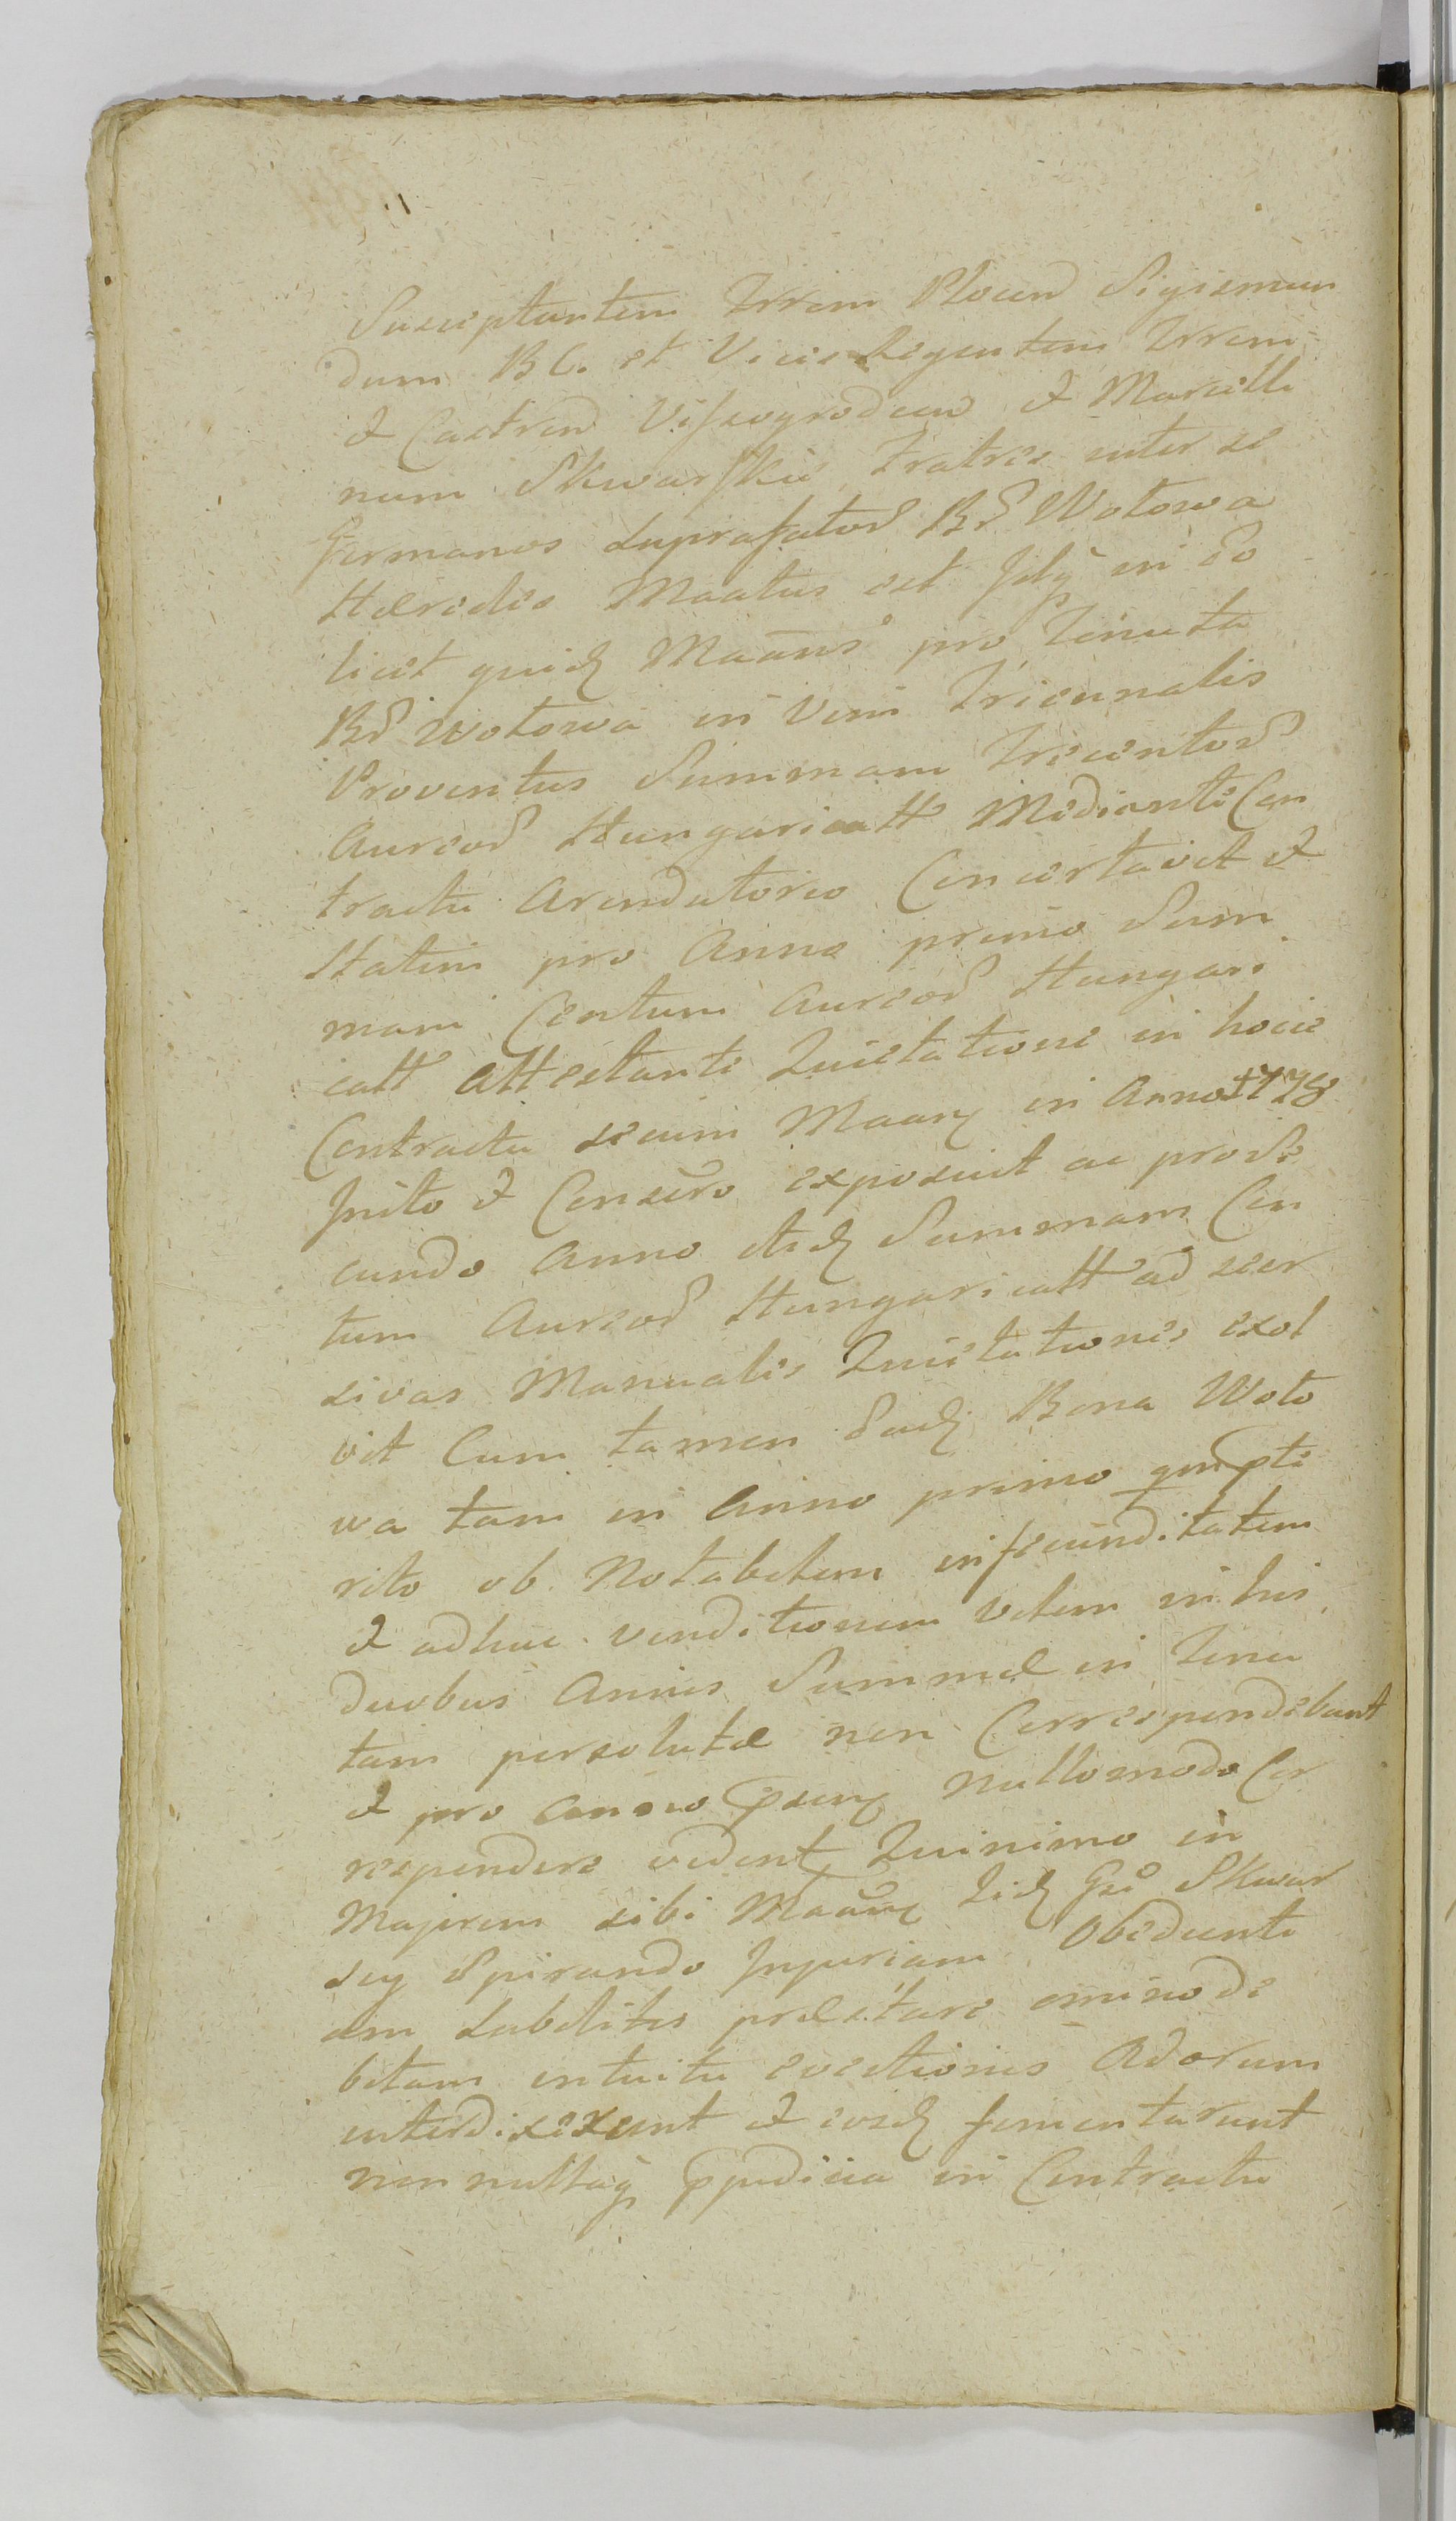 Susceptantem Trrem Plocen Sigismun
dum BC. et Vice Regentem Trrem
& Castren Vissogroden & Marcelli
num Skwarskie Fratres inter se
Germanos suprafator Br Wotowa
Hæredes Maatus est Idq in eo
licet quidq Maans pro Tenuta
Br Wotowa in Vim Triennalis
Proventus Summam Trecentor
Aureor Hungaricall Mediante Con
tractu Arendatorio Concertavit &
Statim pro Anno primo Sum
mam Centum Aureor Hungari
call Attestante Quietatione in hocce
Contractu secum Maarq in Anno 1778
Inito & Conscro exposuit ac pro Se
cundo Anno itidq Summam Cen
tum Aureor Hungaricall ad recr
sivas Manuales Quietationes exol
vit Cum tamen Eadq Bona Woto
wa tam in Anno primo qm pte
rito ob Notabilem infecunditatem
& adhuc venditionem vilem in his
duobus Annis Summæ in Tenu
tam persolutæ non Correspondebant
& pro Anno psenq Nullomodo Cor
respondere vident Quinimo in
Majorem sibi Maarq Iidq Gsi Skwar
scy Spirando Injuriam Obedienti
am Subditis præstare omnino de
bitam intuitu evectionis Adorum
interdixerunt & eosdq fomentarunt
non nullaq ppudicia in Contractu